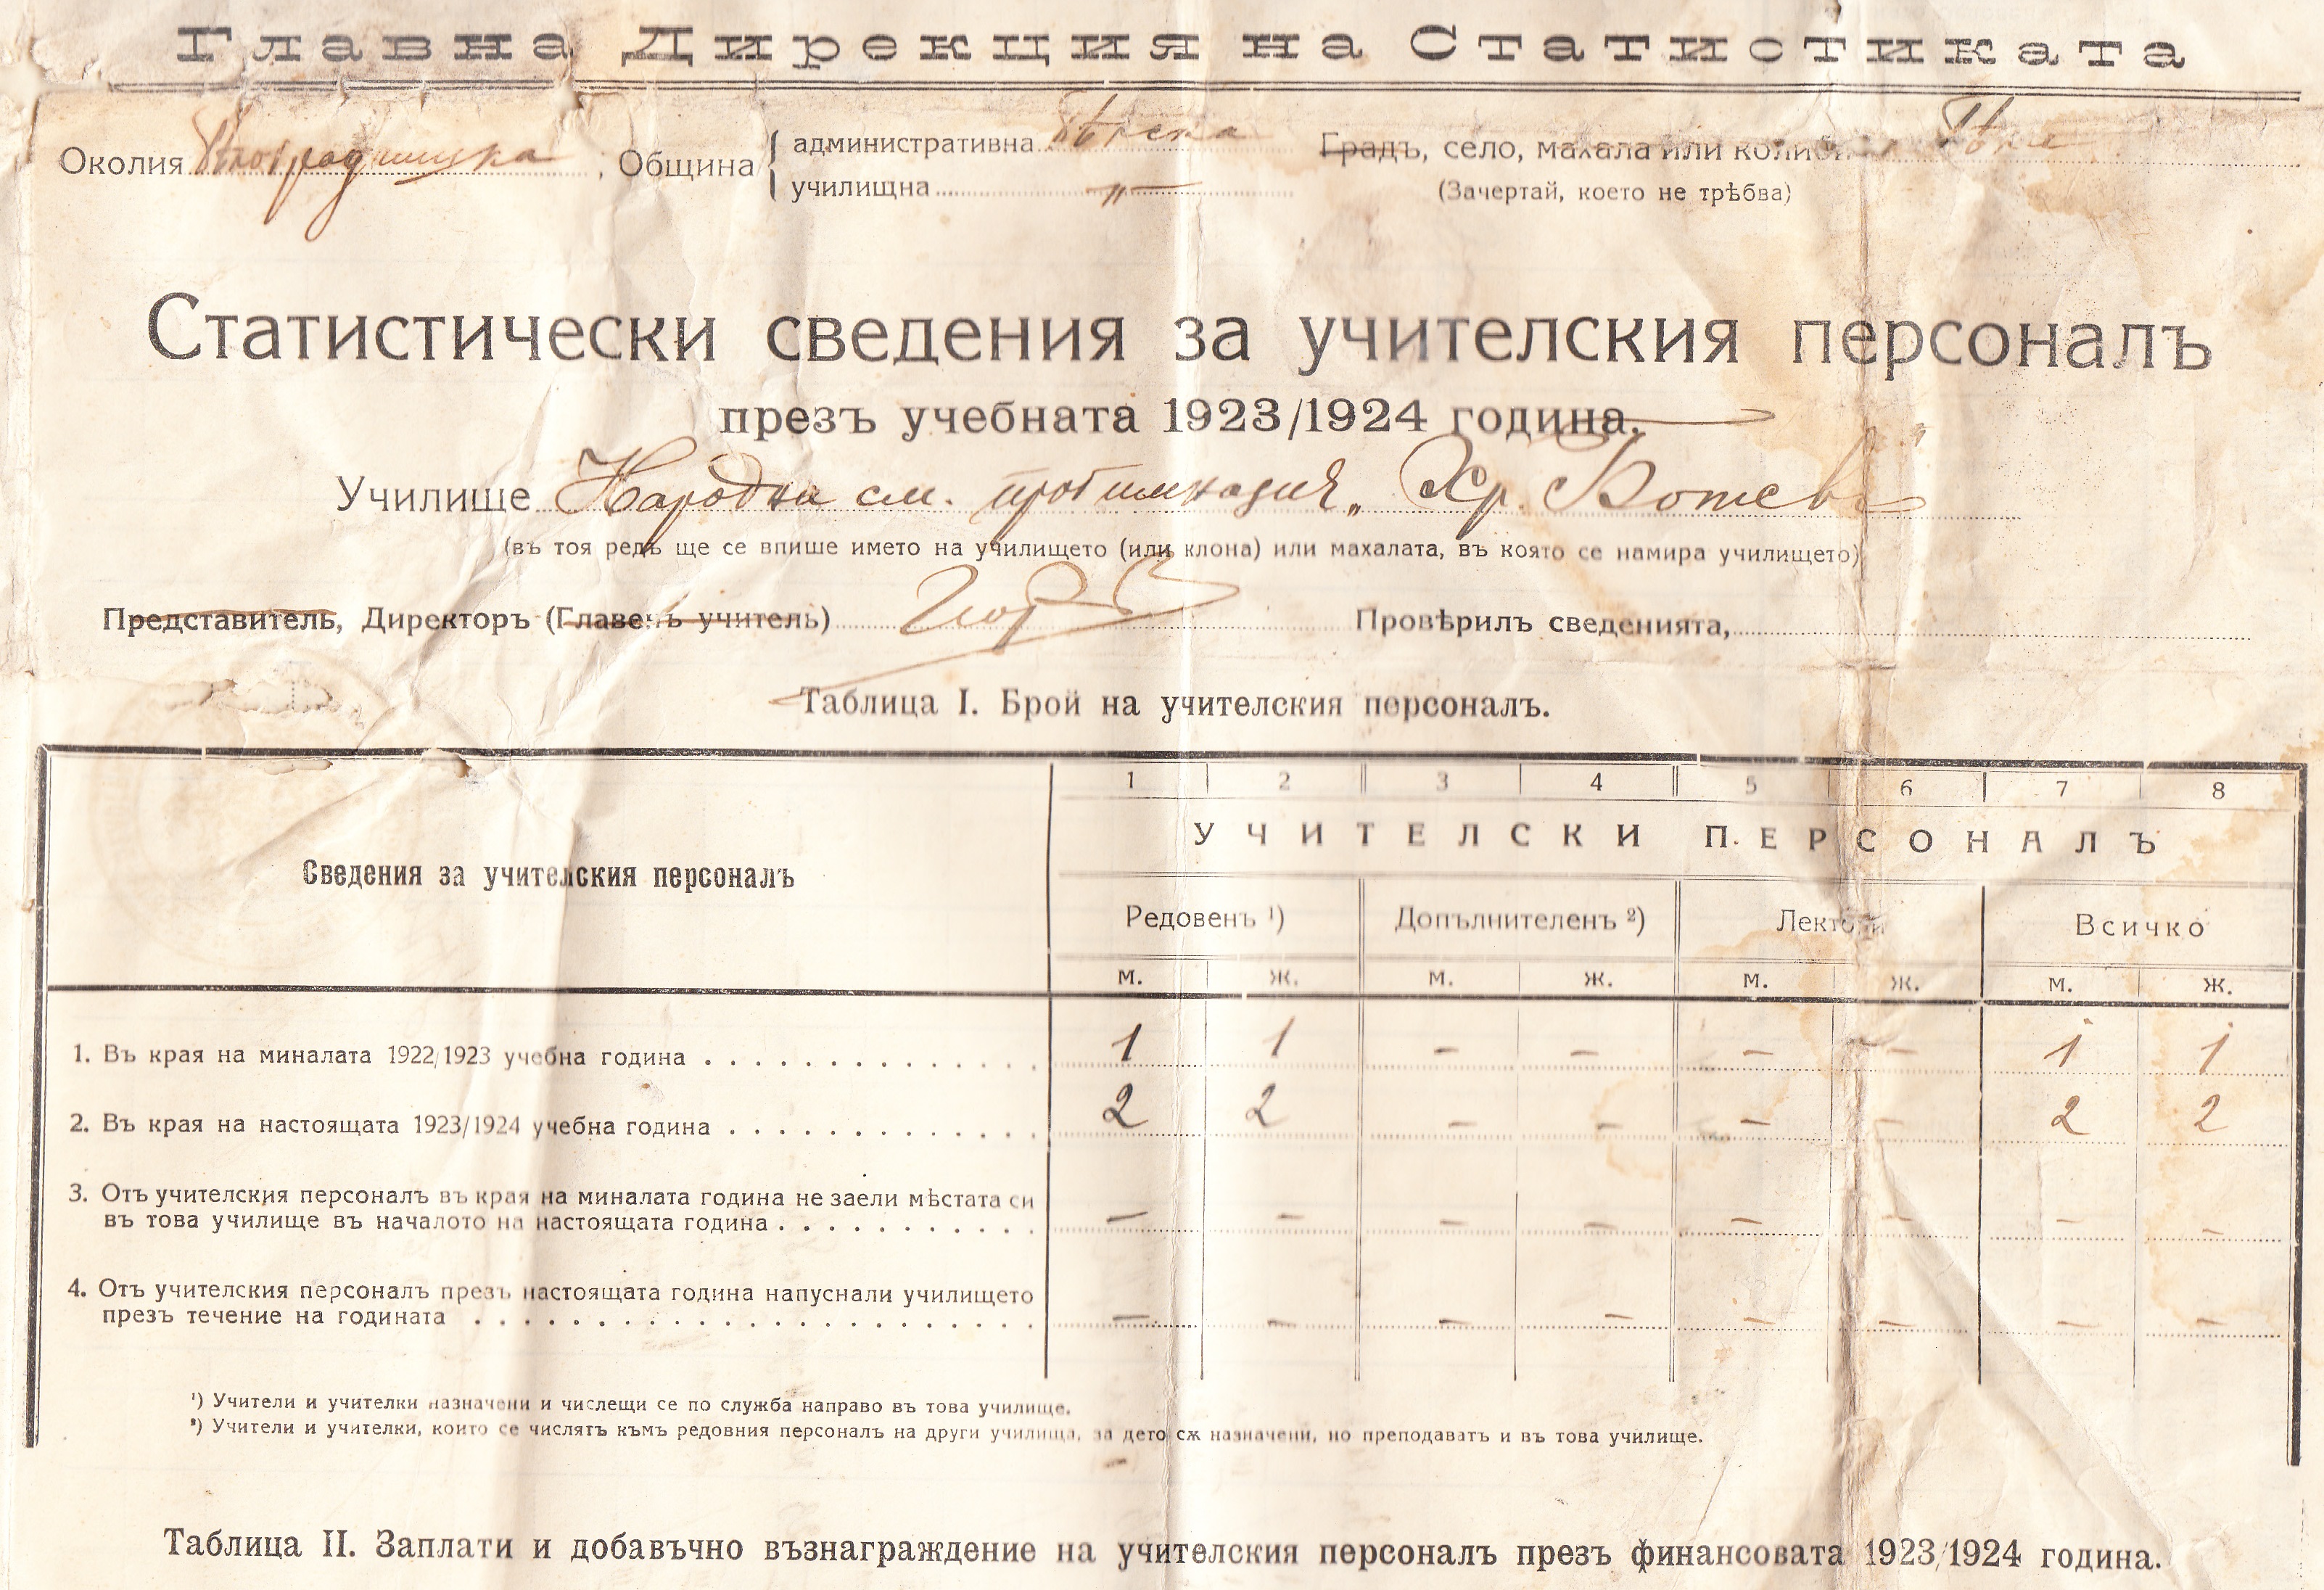 Главна Дирекция на Статистиката
Околия Бѣлоградчишка ; Община { административна
училищна „
Градъ, село, махала или колиби
(Зачертай, което не трѣбва)
Статистически сведения за учителския персоналъ
презъ учебната 1923/1924 година.
Училище Народна см. прогимназия „Хр. Ботевъ“
(въ тоя редъ ще се впише името на училището (или клона) или махалата, въ която се намира училището)
Представитель, Директоръ (Главенъ учитель) Провѣрилъ сведенията,
Таблица I. Брой на учителския персоналъ.
1 2 3 4 5 6 7 8
УЧИТЕЛСКИ ПЕРСОНАЛЪ
Сведения за учителския персоналъ
Редовенъ ¹) Допълнителенъ ²) Лектори Всичко
м. ж. м. ж. м. ж. м. ж.
1. Въ края на миналата 1922/1923 учебна година . . . . . . . . . . . . . . 1 1 – – – – 1 1
2. Въ края на настоящата 1923/1924 учебна година . . . . . . . . . . . . . 2 2 – – – – 2 2
3. Отъ учителския персоналъ въ края на миналата година не заели мѣстата си
въ това училище въ началото на настоящата година . . . . . . . . . . . – – – – – – – –
4. Отъ учителския персоналъ презъ настоящата година напуснали училището
презъ течение на годината . . . . . . . . . . . . . . . . . . . . . . . – – – – – – – –
¹) Учители и учителки назначени и числещи се по служба направо въ това училище.
²) Учители и учителки, които се числятъ къмъ редовния персоналъ на други училища, за дето сѫ назначени, но преподаватъ и въ това училище.
Таблица II. Заплати и добавъчно възнаграждение на учителския персоналъ презъ финансовата 1923/1924 година.